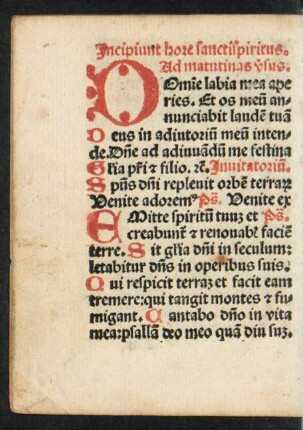 Incipiunt hore sanctispiritus.
Ad matutinas v̄sus.
Domīe labia mea ape
ries. Et os meū an-
nunciabit laudē tuā
Deus in adiutoriū meū inten-
de. Dn̄e ad adiuuādū me festina
Glīa pr̄i ⁊ filio. ⁊c̄. Inuitatoriū.
Spūs dn̄i repleuit orbē terraꝝ
Venite adoremꝰ Ps̄. Venite ex
Emitte spiritū tuuꝫ et Ps̄.
creabunt̄ ⁊ renouabꝭ faciē
terre. Sit glīa dn̄i in seculum:
letabitur dn̄s in operibus suis.
Qui respicit terraꝫ et facit eam
tremere: qui tangit montes ⁊ fu-
migant. Cantabo dn̄o in vita
mea: psallā deo meo quā diu suꝫ.